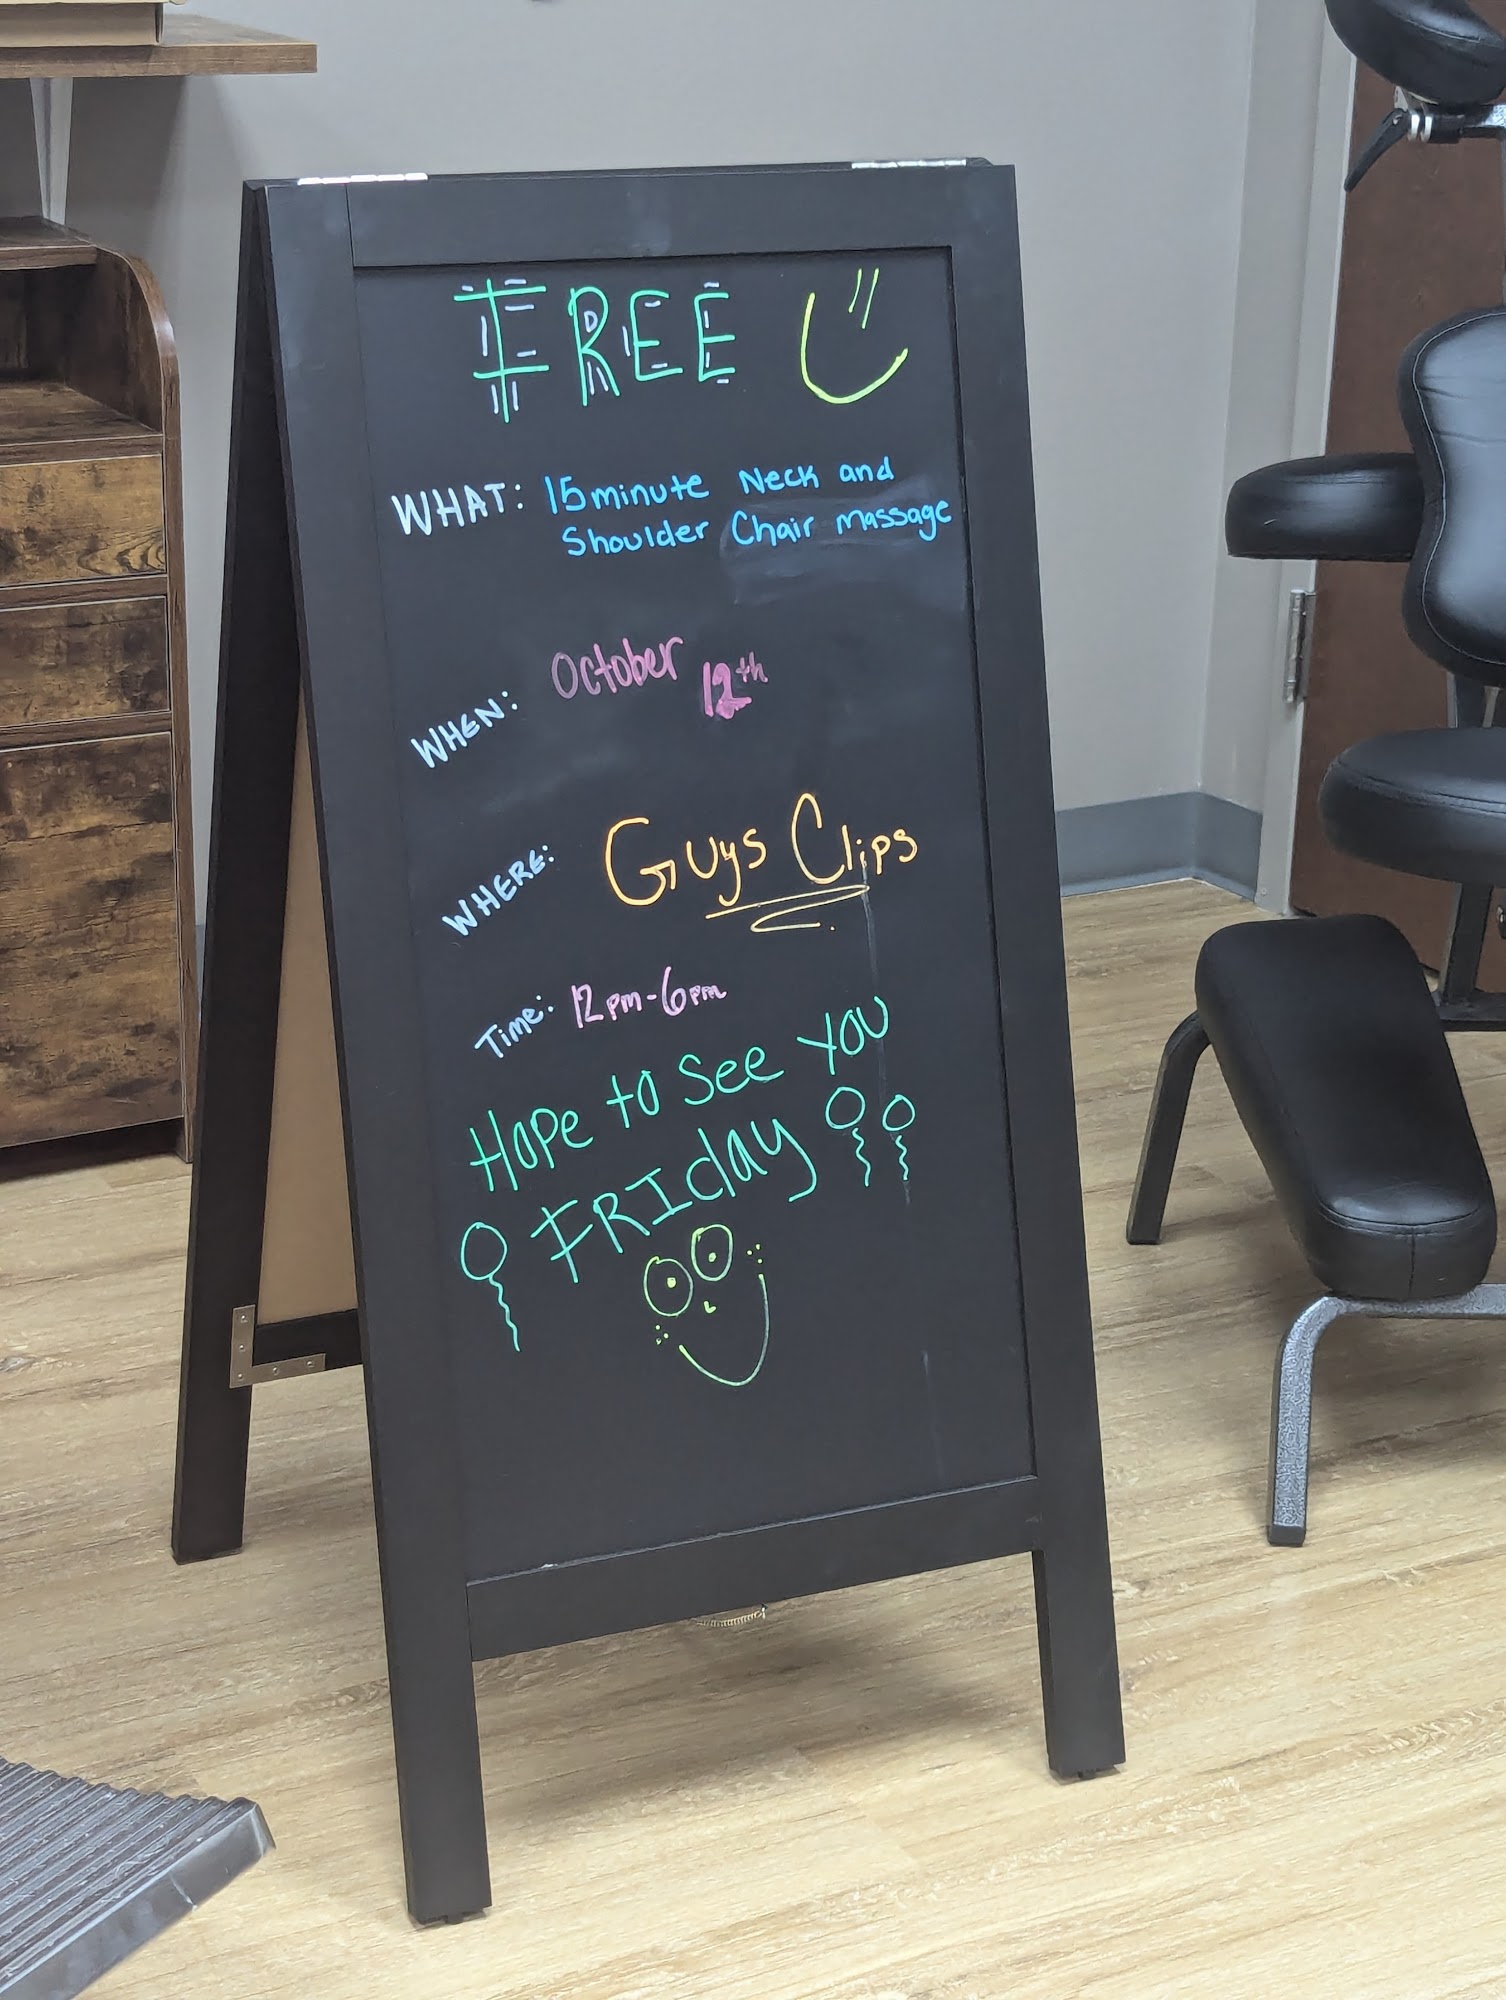 FREE
WHAT: 15 minute Neck and
Shoulder Chair massage
WHEN: October 12th
WHERE: Guys Clips
Time: 12pm-6pm
Hope to See You
FRIday